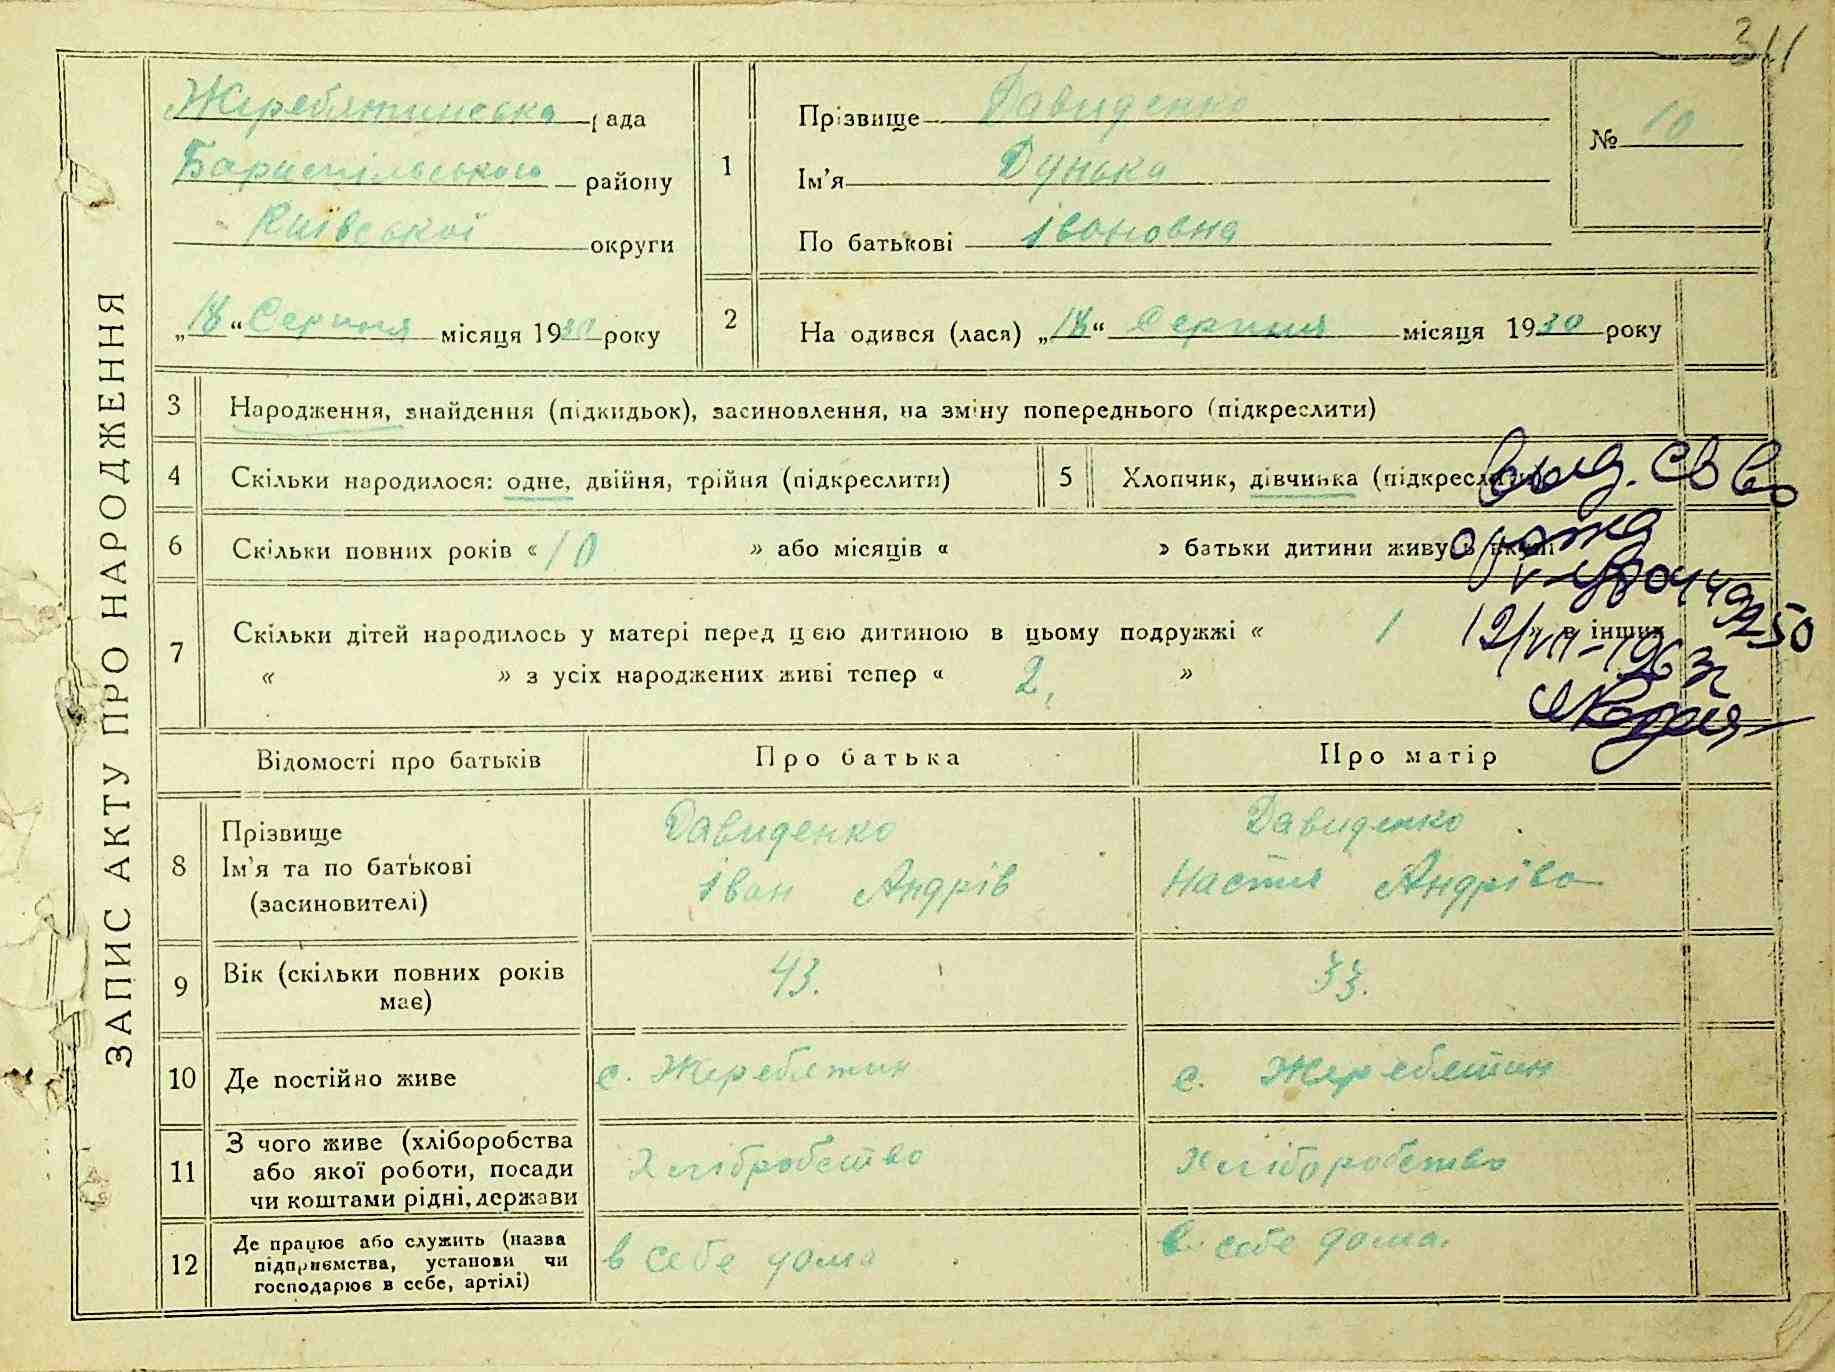 311
ЗАПИС АКТУ ПРО НАРОДЖЕННЯ
Жеребятинська рада
Бариспільського району
Київської округи
„18“ Серпня місяця 1930 року
1
Прізвище Давиденко
Ім'я Дунька
По батькові Івановна
№ 10
2
На одився (лася) „18“ Серпня місяця 1930 року
3 Народження, знайдення (підкидьок), засиновлення, на зміну попереднього (підкреслити)
4 Скільки народилося: одне, двійня, трійня (підкреслити)
5 Хлопчик, дівчинка (підкреслити)
6 Скільки повних років « 10 » або місяців « » батьки дитини живуть вкупі
7 Скільки дітей народилось у матері перед цією дитиною в цьому подружжі « 1 » в інших
« » з усіх народжених живі тепер « 2, »
выд. св во
12/VII-1963г
Відомості про батьків Про батька Про матір
8 Прізвище
Ім'я та по батькові
(засиновителі)
Давиденко
Іван Андрів
Давиденко
Настя Андріва
9 Вік (скільки повних років
має)
43.
33.
10 Де постійно живе с. Жеребятин с. Жеребятин
11 З чого живе (хліборобства
або якої роботи, посади
чи коштами рідні, держави
Хлібробство
Хліборобство
12 Де працює або служить (назва
підприємства, установи чи
господарює в себе, артілі)
в себе дома
в себе дома.